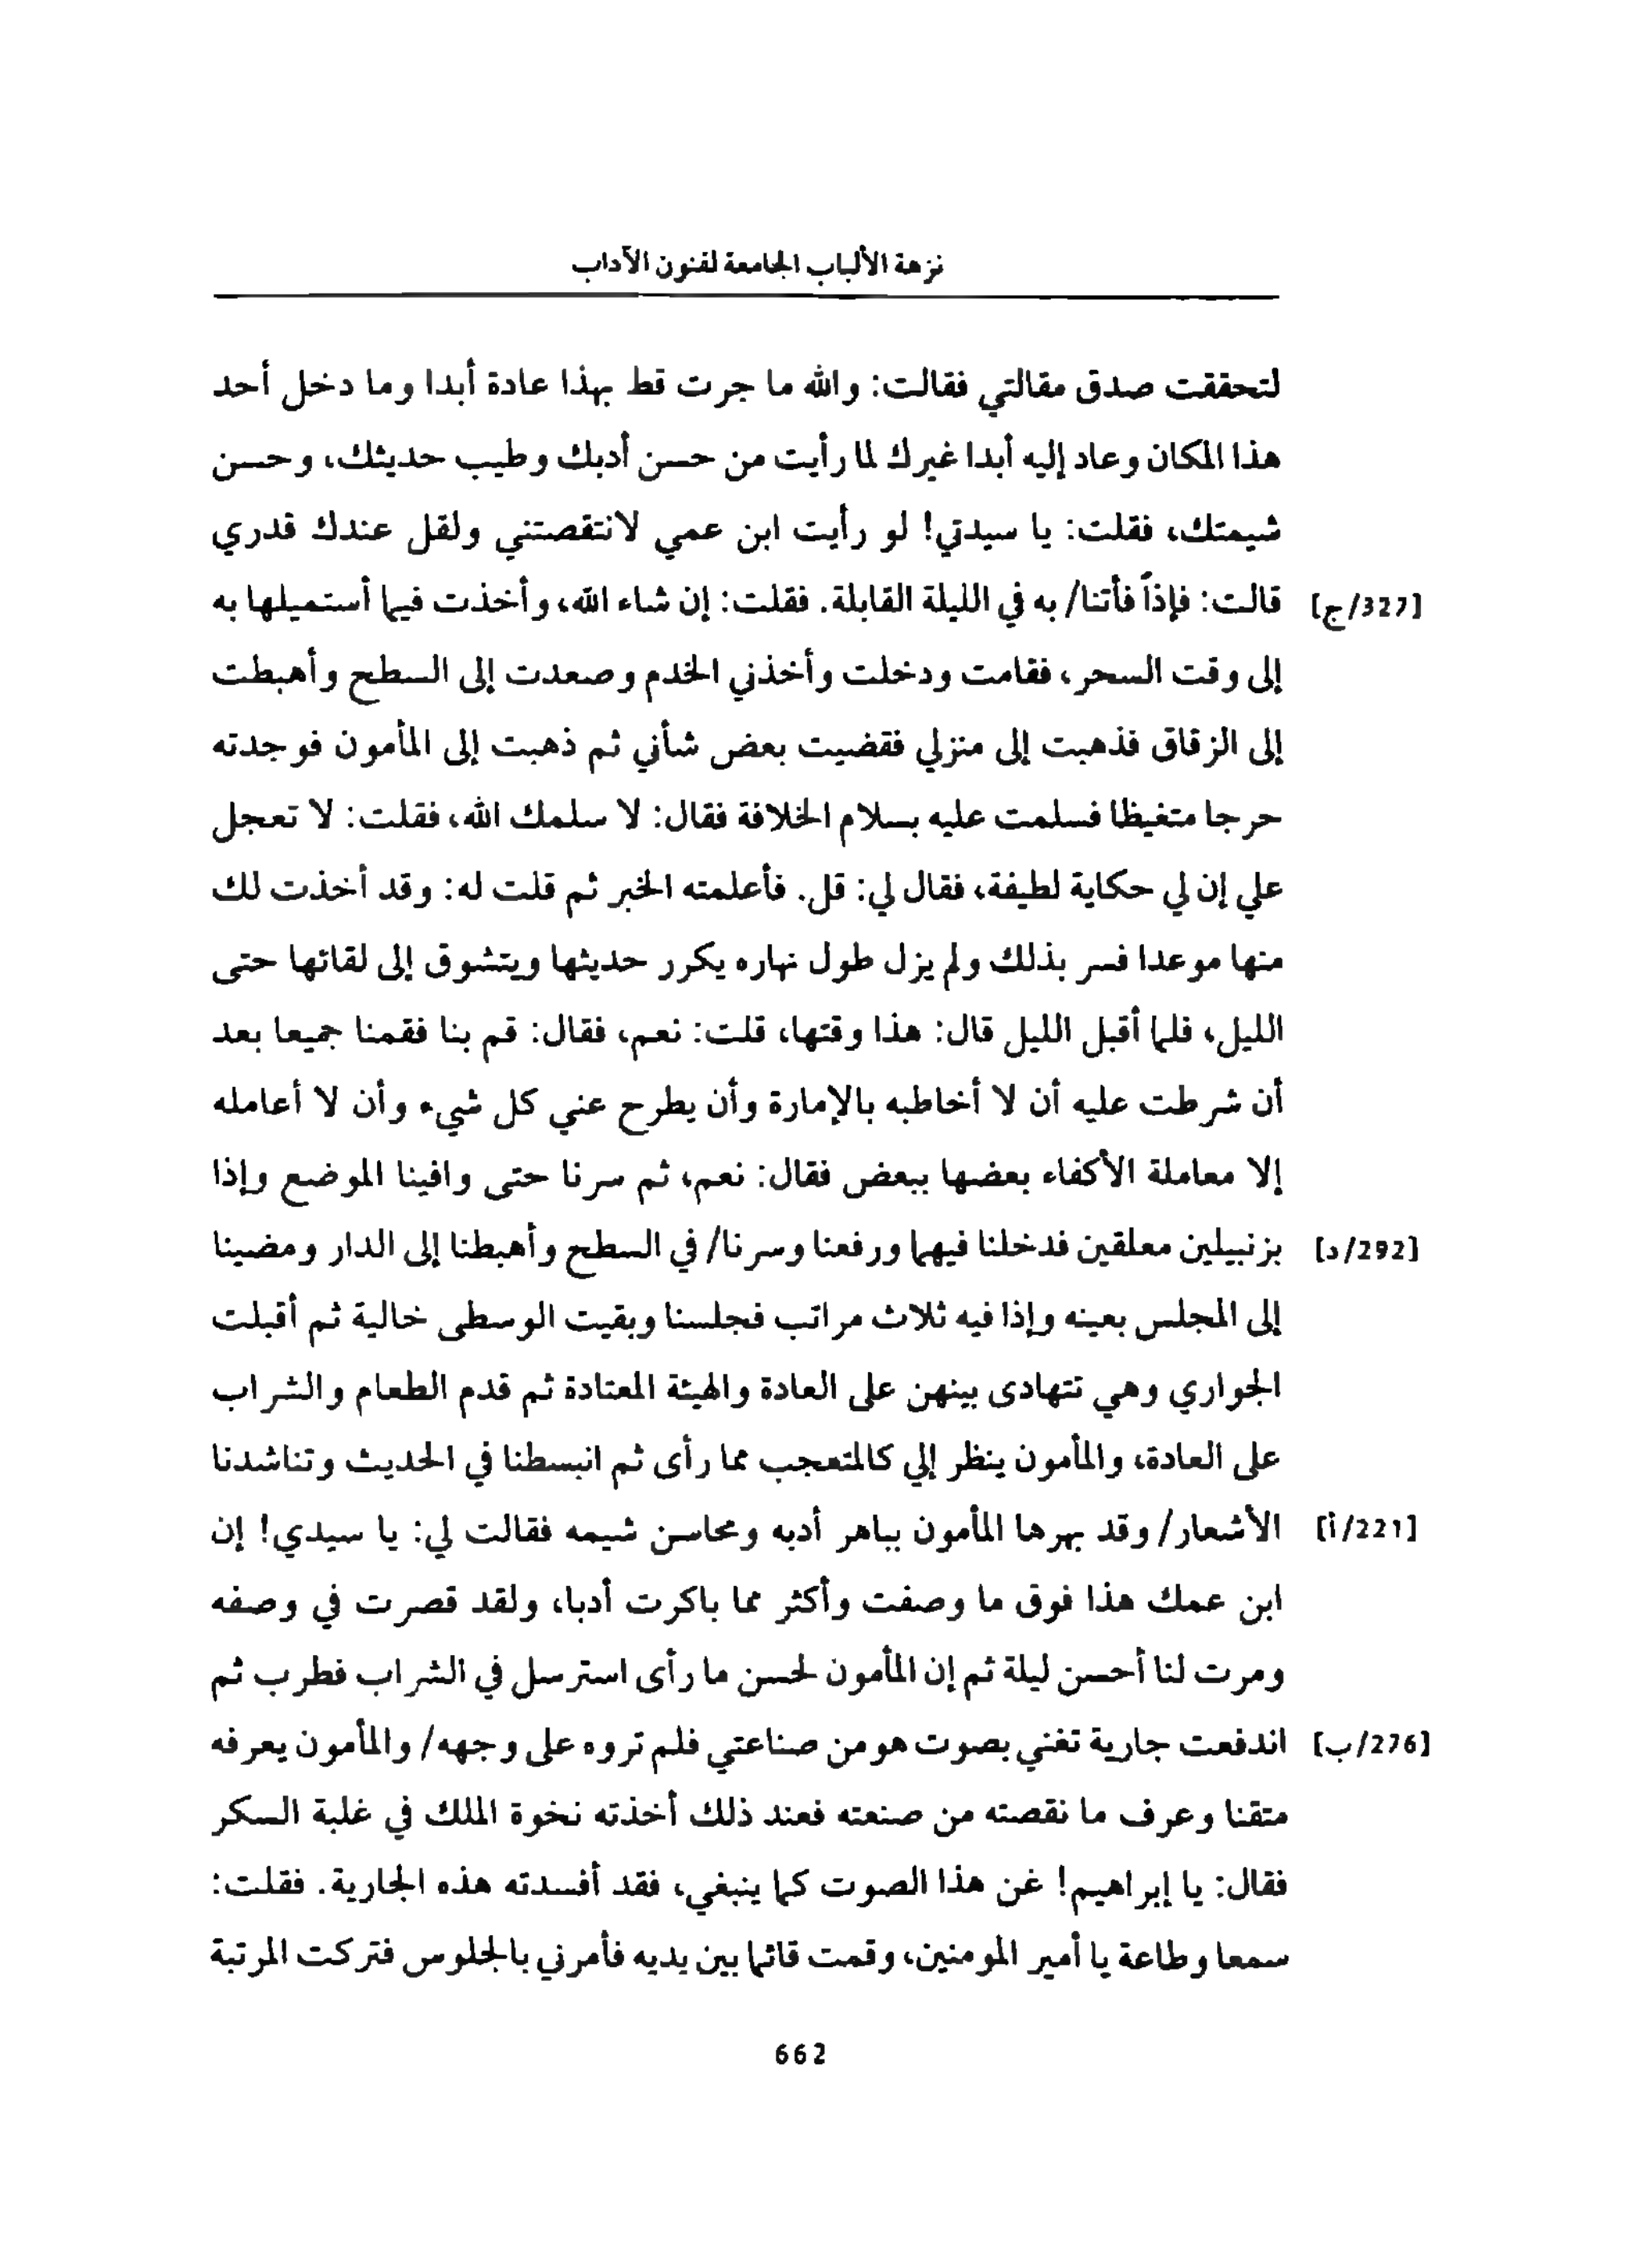 نزهة الألباب الجامعة لفنون الآداب
لتحققت صدق مقالتي فقالت: والله ما جرت قط بهذا عادة أبدا وما دخل أحد
هذا المكان وعاد إليه أبدا غيرك لما رأيت من حسن أدبك وطيب حديثك، وحسن
شيمتك، فقلت: يا سيدتي! لو رأيت ابن عمي لانتقصتني ولقل عندك قدري
[327/ج] قالت: فإذاً فأتنا/ به في الليلة القابلة. فقلت: إن شاء الله، وأخذت فيما أستميلها به
إلى وقت السحر، فقامت ودخلت وأخذني الخدم وصعدت إلى السطح وأهبطت
إلى الزقاق فذهبت إلى منزلي فقضيت بعض شأني ثم ذهبت إلى المأمون فوجدته
حرجا متغيظا فسلمت عليه بسلام الخلافة فقال: لا سلمك الله، فقلت: لا تعجل
علي إن لي حكاية لطيفة، فقال لي: قل. فأعلمته الخبر ثم قلت له: وقد أخذت لك
منها موعدا فسر بذلك ولم يزل طول نهاره يكرر حديثها ويتشوق إلى لقائها حتى
الليل، فلما أقبل الليل قال: هذا وقتها، قلت: نعم، فقال: قم بنا فقمنا جميعا بعد
أن شرطت عليه أن لا أخاطبه بالإمارة وأن يطرح عني كل شيء وأن لا أعامله
إلا معاملة الأكفاء بعضها ببعض فقال: نعم، ثم سرنا حتى وافينا الموضع وإذا
[292/د] بزنبيلين معلقين فدخلنا فيهما ورفعنا وسرنا/ في السطح وأهبطنا إلى الدار ومضينا
إلى المجلس بعينه وإذا فيه ثلاث مراتب فجلسنا وبقيت الوسطى خالية ثم أقبلت
الجواري وهي تتهادى بينهن على العادة والهيئة المعتادة ثم قدم الطعام والشراب
على العادة، والمأمون ينظر إلي كالمتعجب مما رأى ثم انبسطنا في الحديث وتناشدنا
[221/أ] الأشعار/ وقد بهرها المأمون بباهر أدبه ومحاسن شيمه فقالت لي: يا سيدي! إن
ابن عمك هذا فوق ما وصفت وأكثر مما باكرت أدبا، ولقد قصرت في وصفه
ومرت لنا أحسن ليلة ثم إن المأمون لحسن ما رأى استرسل في الشراب فطرب ثم
[276/ب] اندفعت جارية تغني بصوت هو من صناعتي فلم تروه على وجهه/ والمأمون يعرفه
متقنا وعرف ما نقصته من صنعته فعند ذلك أخذته نخوة الملك في غلبة السكر
فقال: يا إبراهيم! غن هذا الصوت كما ينبغي، فقد أفسدته هذه الجارية. فقلت:
سمعا وطاعة يا أمير المومنين، وقمت قائما بين يديه فأمرني بالجلوس فتركت المرتبة
662